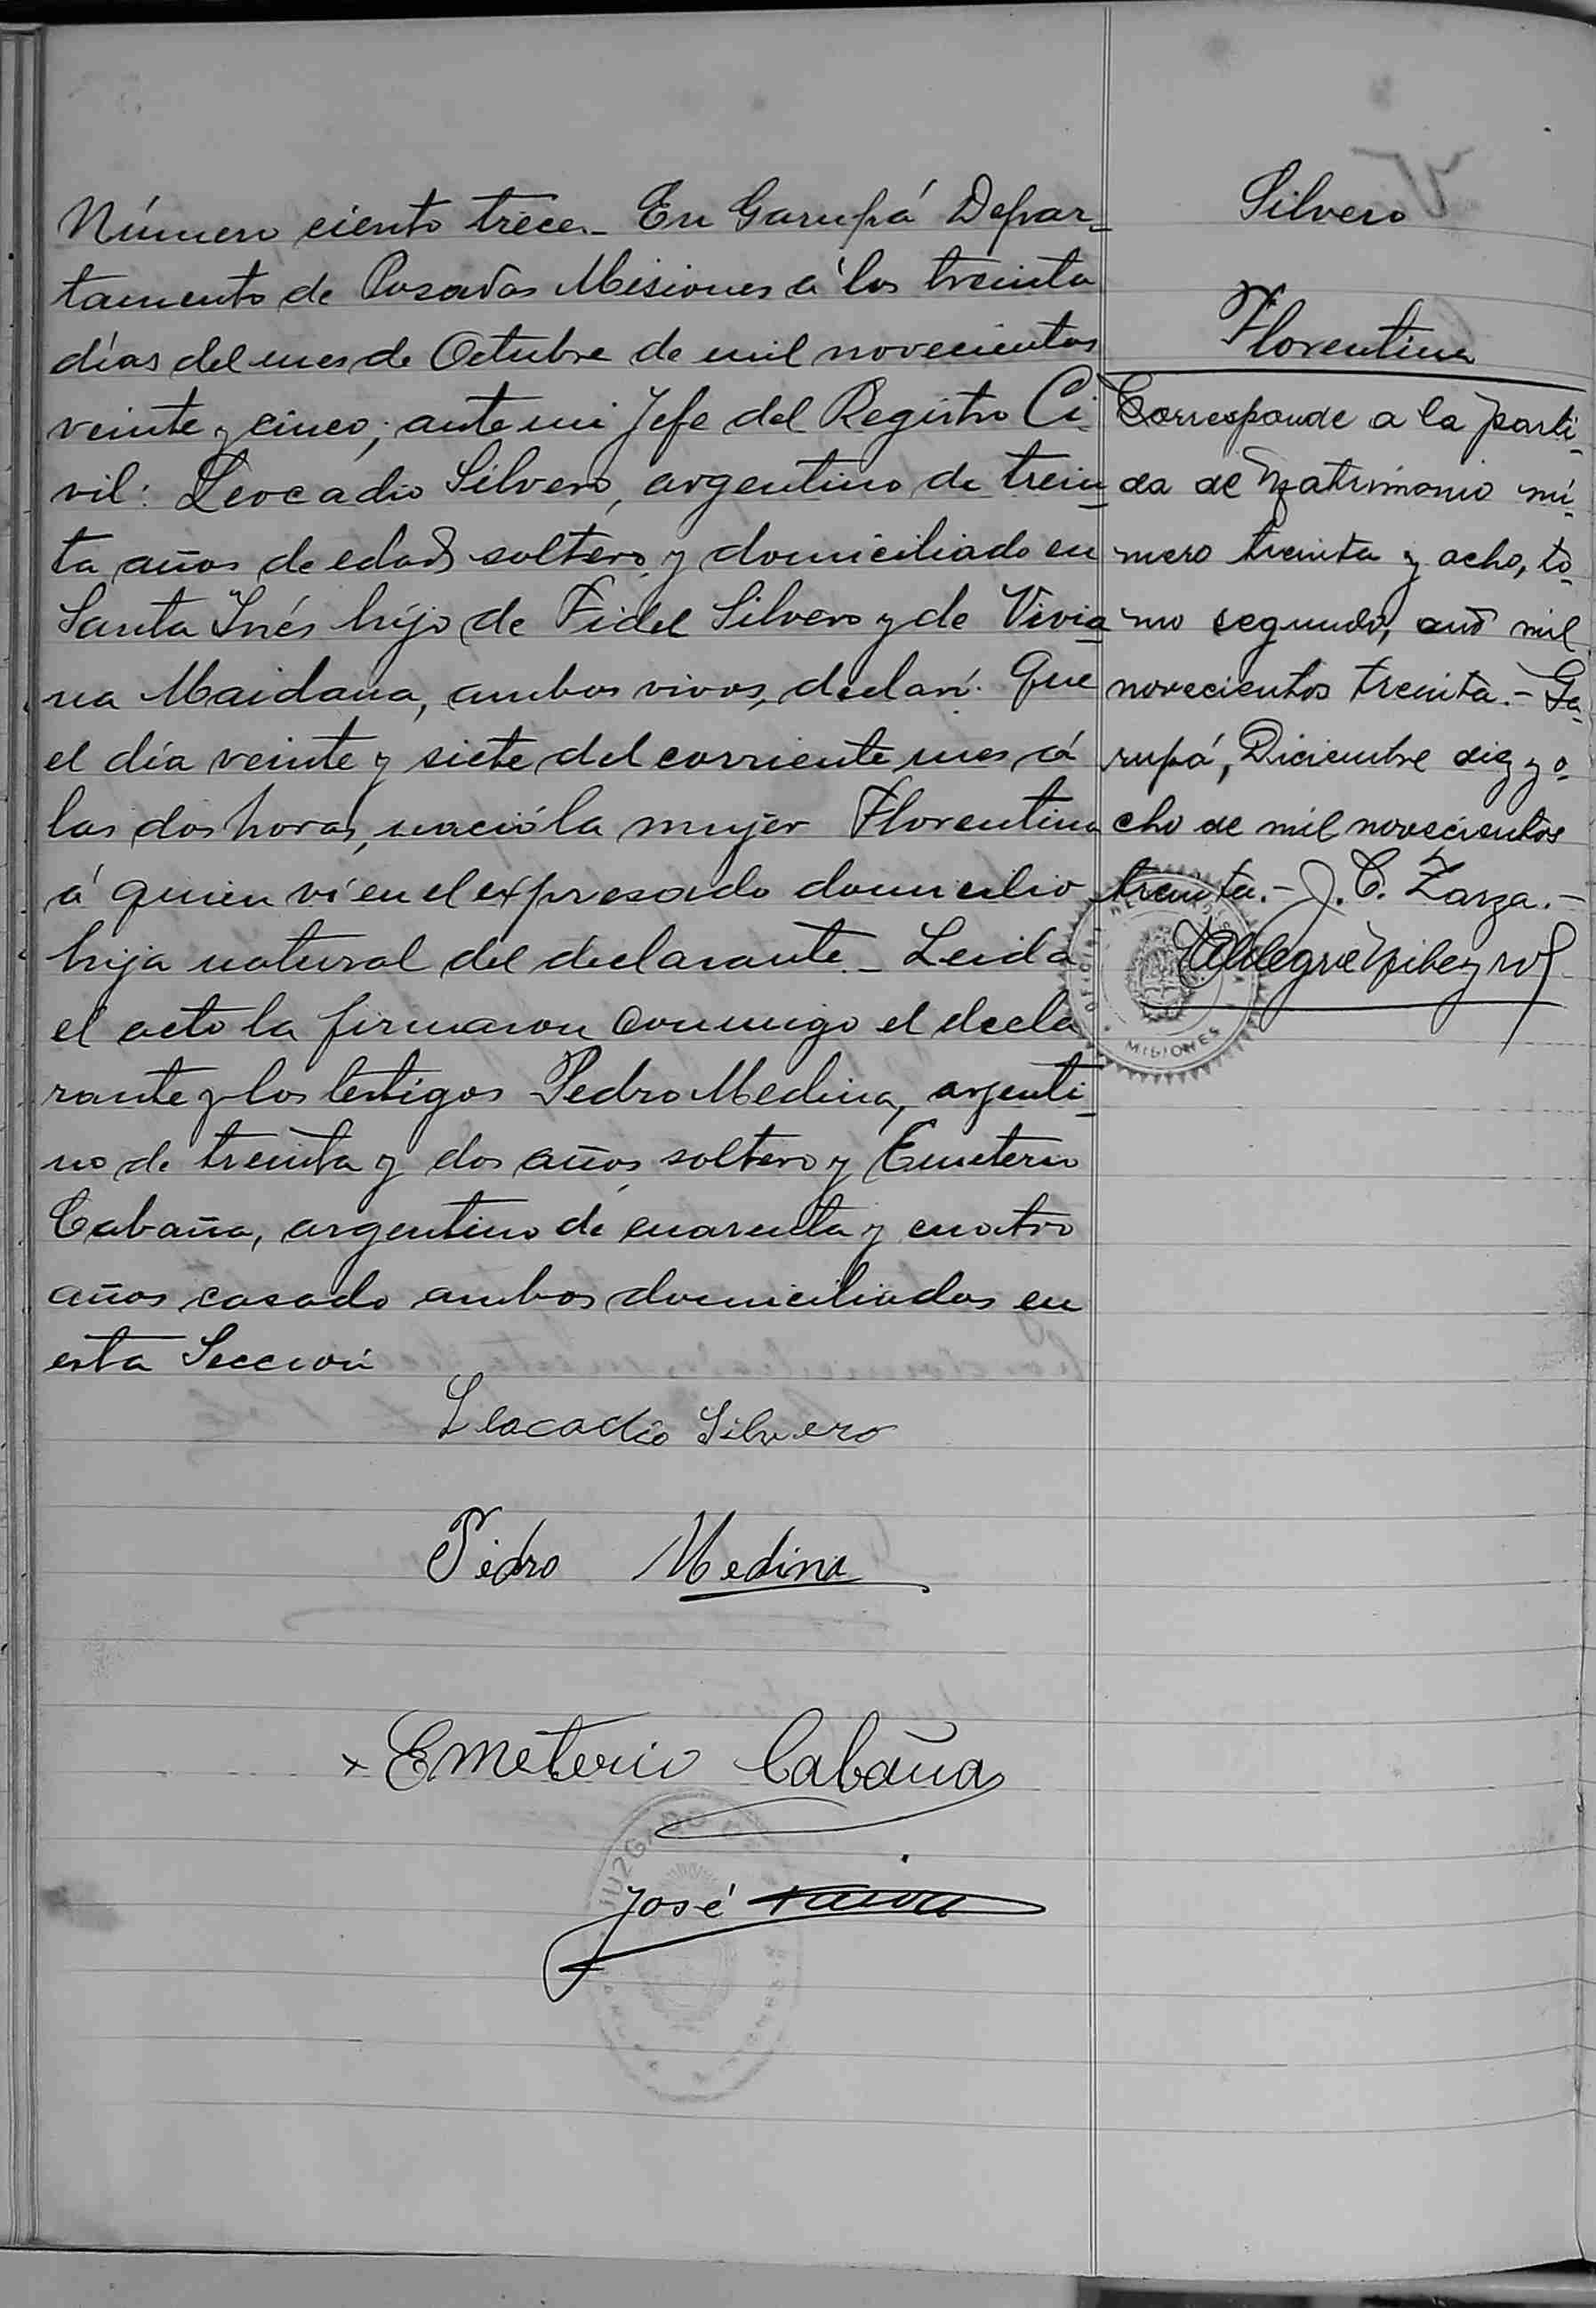 Número ciento trece.- En Garupá Depar-
tamento de Posadas Misiones á los treinta
días del mes de Octubre de mil novecientos
veinte y cinco; ante mi Jefe del Registro Ci-
vil: Leocadio Silvero, argentino de trein-
ta años de edad soltero y domiciliado en
Santa Inés hijo de Fidel Silvero y de Vivia-
na Maidana, ambos vivos, declaró: Que
el día veinte y siete del corriente mes á
las dos horas, nació la mujer Florentina
á quien ví en el expresado domicilio
hija natural del declarante.- Leida
el acto la firmaron conmigo el decla
rante y los testigos Pedro Medina, argenti-
no de treinta y dos años soltero y Emeterio
Cabaña, argentino de cuarenta y cuatro
años casado ambos domiciliados en
esta Sección
Leocadio Silvero
Pedro Medina
x Emeterio Cabaña
José
JUZGADO
Silvero
Florentina
Corresponde a la parti-
da de Matrimonio nú-
mero treinta y ocho, to-
mo segundo, año mil
novecientos treinta.- Ga-
rupá, Diciembre diez y o-
cho de mil novecientos
treinta.- J. C. Zarza.-
MISIONES